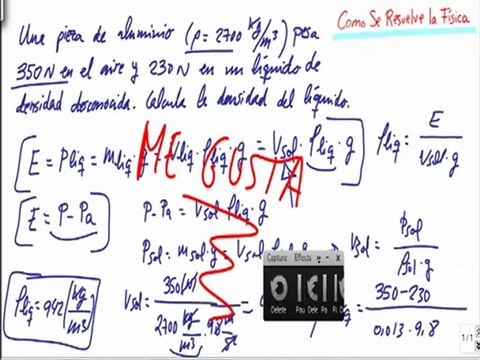 Como Se Resuelve la Física
Una pieza de aluminio (ρ = 2700 kg/m³) pesa
350N en el aire y 230N en un líquido de
densidad desconocida. Calcula la densidad del líquido.
E = Pliq = mliq·g = Vliq·ρliq·g = Vsol·ρliq·g
ρliq = E / Vsol·g
ME GUSTA
E = P - Pa
P - Pa = Vsol·ρliq·g
Psol = msol·g = Vsol
Vsol = Psol / ρsol·g
ρliq = 942 kg/m³
Vsol = 350(N) / 2700 kg/m³ · 9.8
= 350 - 230 / 0,013 · 9,8
Capture Effects
Delete Pau Dele Pa
1/1